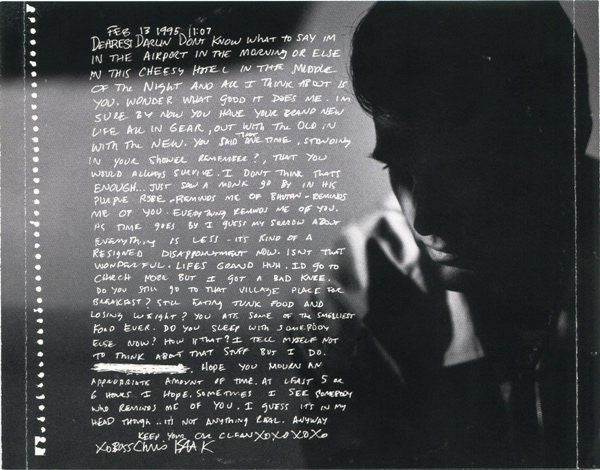 FEB 13 1995 11:07
DEAREST DARLIN DONT KNOW WHAT TO SAY IM
IN THE AIRPORT IN THE MORNING OR ELSE
IN THIS CHEESY HOTEL IN THE MIDDLE
OF THE NIGHT AND ALL I THINK ABOUT IS
YOU. WONDER WHAT GOOD IT DOES ME. IM
SURE BY NOW YOU HAVE YOUR BRAND NEW
LIFE ALL IN GEAR, OUT WITH THE OLD IN
WITH THE NEW. YOU SAID THAT ONE TIME, STANDING
IN YOUR SHOWER REMEMBER?, THAT YOU
WOULD ALWAYS SURVIVE. I DONT THINK THATS
ENOUGH... JUST SAW A MONK GO BY IN HIS
PURPLE ROBE - REMINDS ME OF BHUTAN - REMINDS
ME OF YOU. EVERYTHING REMINDS ME OF YOU.
AS TIME GOES BY I GUESS MY SORROW ABOUT
EVERYTHING IS LESS - ITS KIND OF A
RESIGNED DISAPPOINTMENT NOW. ISNT THAT
WONDERFUL. LIFES GRAND HUH. ID GO TO
CHURCH MORE BUT I GOT A BAD KNEE.
DO YOU STILL GO TO THAT VILLAGE PLACE FOR
BREAKFAST? STILL EATING JUNK FOOD AND
LOSING WEIGHT? YOU ATE SOME OF THE SMELLIEST
FOOD EVER. DO YOU SLEEP WITH SOMEBODY
ELSE NOW? HOW IS THAT? I TELL MYSELF NOT
TO THINK ABOUT THAT STUFF BUT I DO.
HOPE YOU MOURN AN
APPROPRIATE AMOUNT OF TIME. AT LEAST 5 OR
6 HOURS I HOPE. SOMETIMES I SEE SOMEBODY
WHO REMINDS ME OF YOU. I GUESS IT'S IN MY
HEAD THOUGH... IT'S NOT ANYTHING REAL. ANYWAY
KEEP YOUR CAR CLEAN XOXOXOXO
XOBOSS CHRIS ISAAK